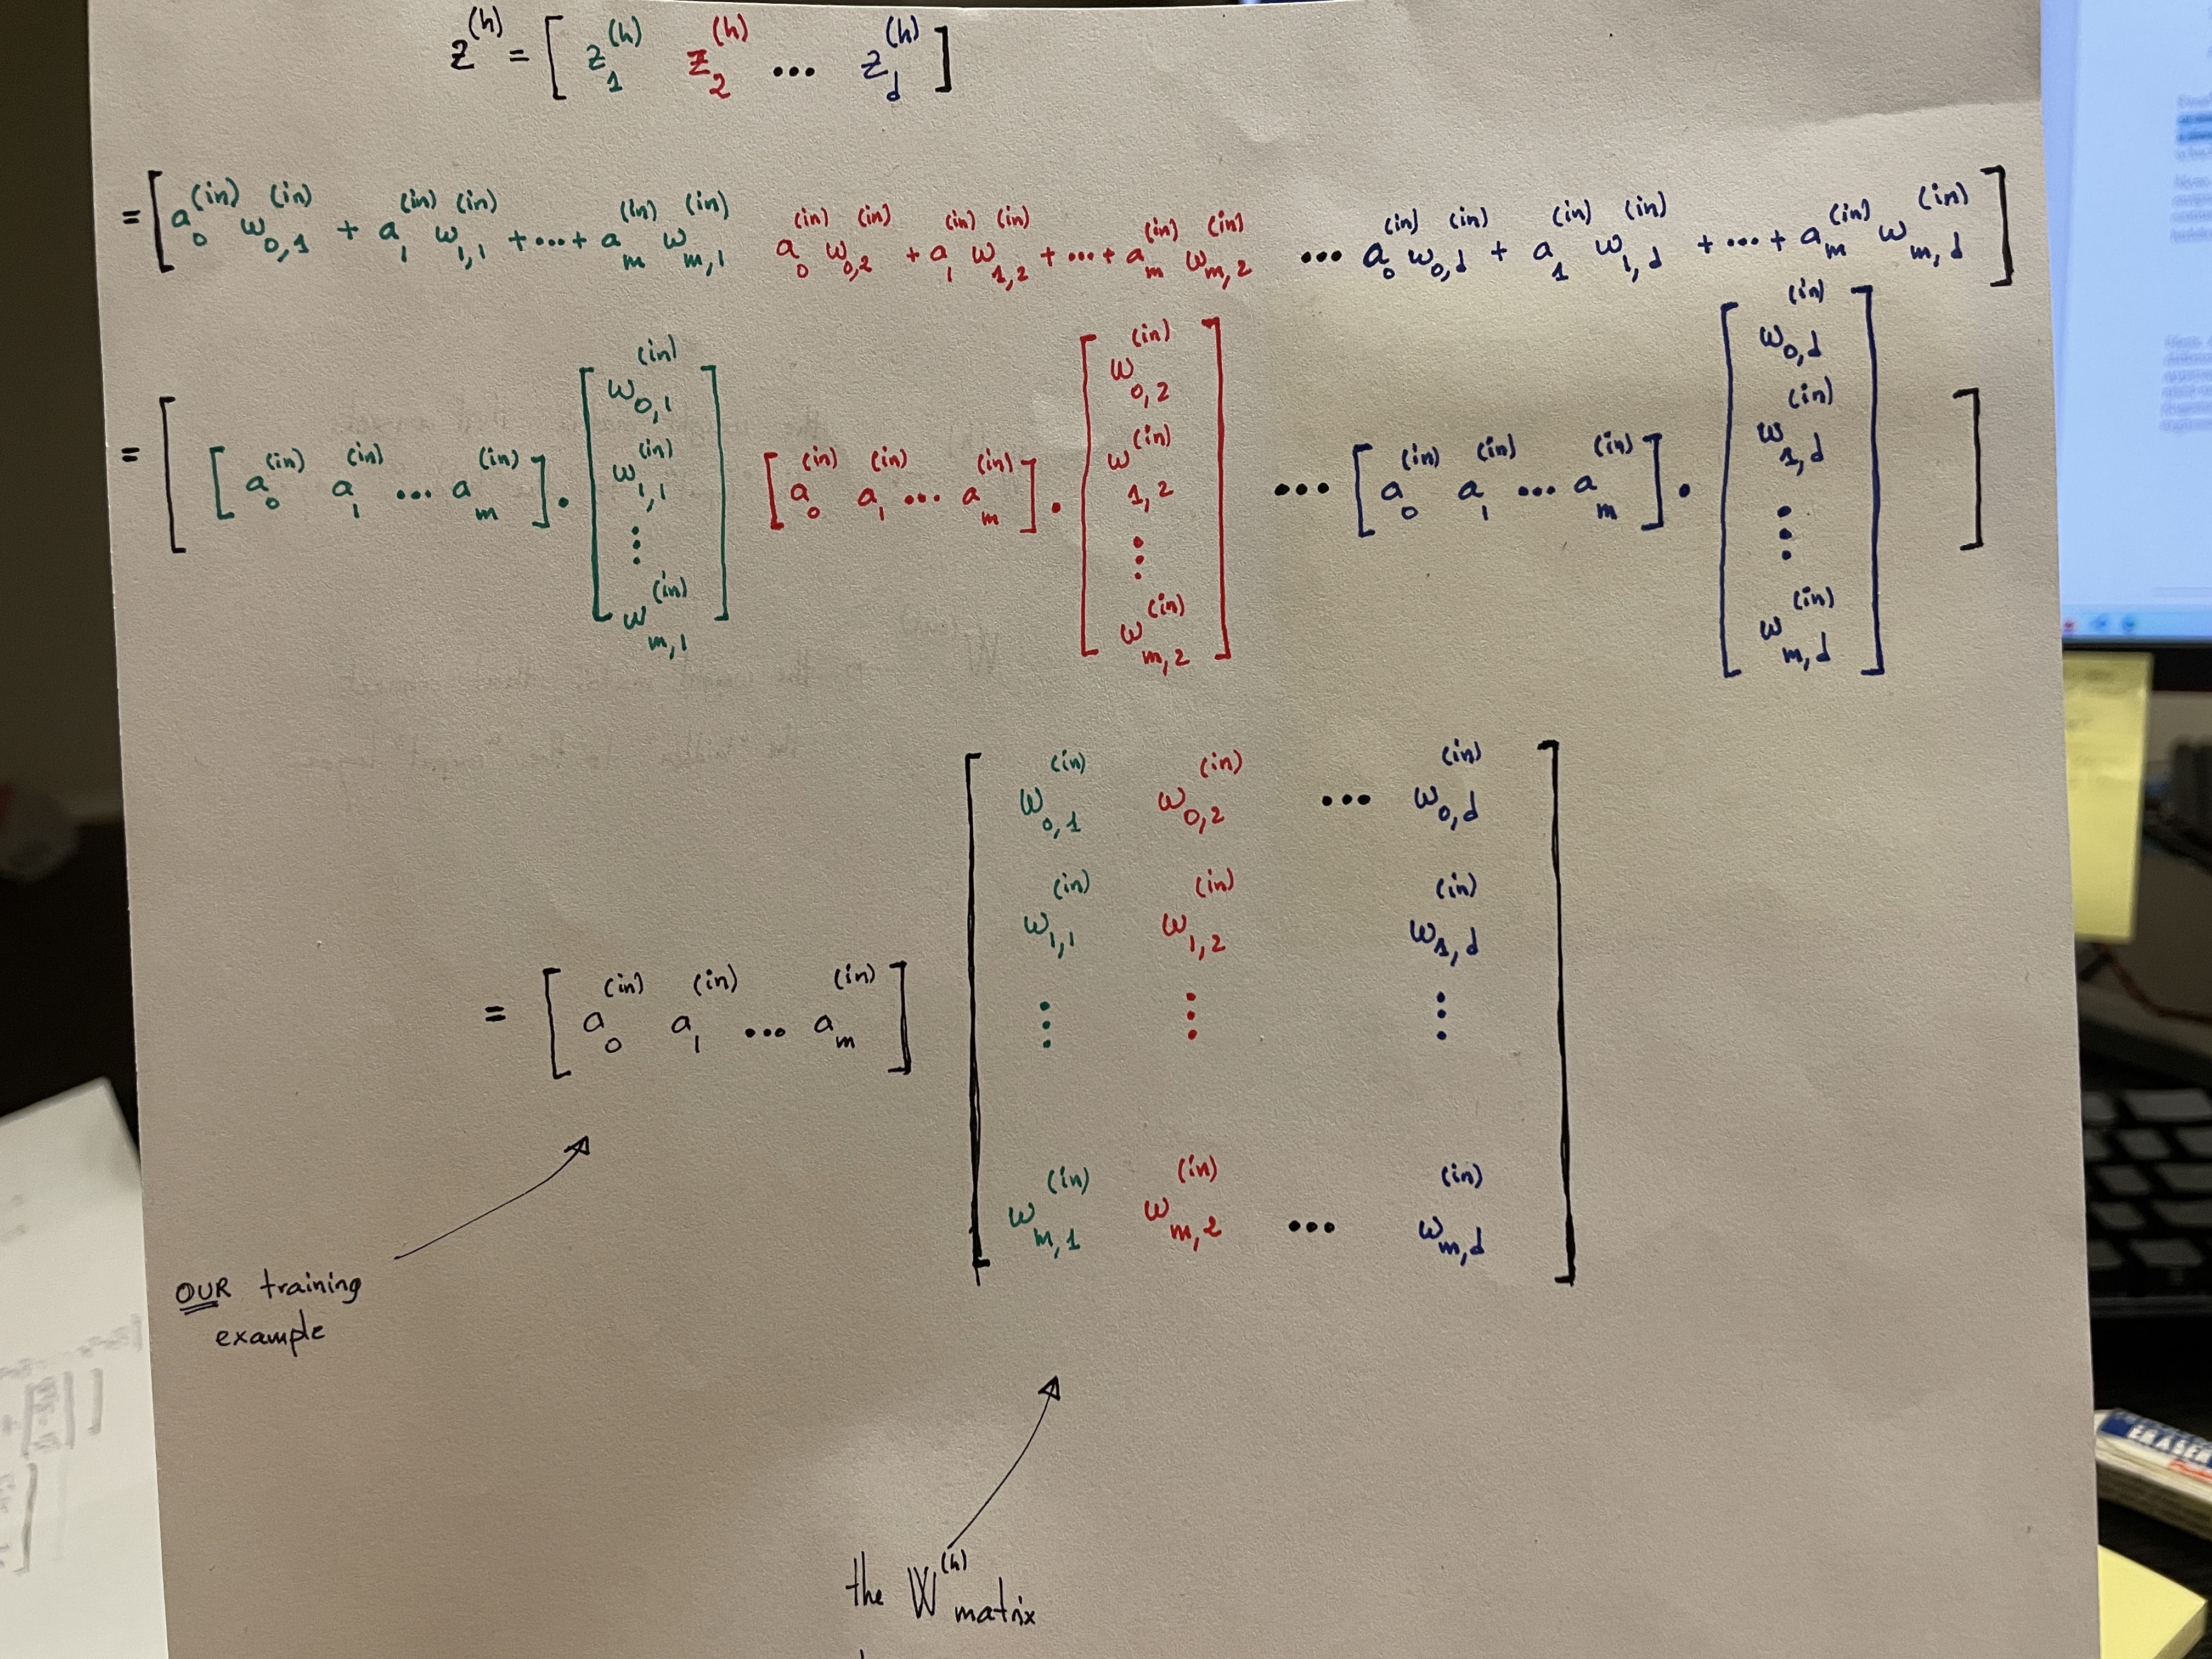 z^(h) = [ z_1^(h) z_2^(h) ... z_d^(h) ]
= [ a_0^(in) w_{0,1}^(in) + a_1^(in) w_{1,1}^(in) + ... + a_m^(in) w_{m,1}^(in) a_0^(in) w_{0,2}^(in) + a_1^(in) w_{1,2}^(in) + ... + a_m^(in) w_{m,2}^(in) ... a_0^(in) w_{0,d}^(in) + a_1^(in) w_{1,d}^(in) + ... + a_m^(in) w_{m,d}^(in) ]
= [ [ a_0^(in) a_1^(in) ... a_m^(in) ] . [ w_{0,1}^(in) w_{1,1}^(in) ⋮ w_{m,1}^(in) ] [ a_0^(in) a_1^(in) ... a_m^(in) ] . [ w_{0,2}^(in) w_{1,2}^(in) ⋮ w_{m,2}^(in) ] ... [ a_0^(in) a_1^(in) ... a_m^(in) ] . [ w_{0,d}^(in) w_{1,d}^(in) ⋮ w_{m,d}^(in) ] ]
= [ a_0^(in) a_1^(in) ... a_m^(in) ]
[ w_{0,1}^(in) w_{0,2}^(in) ... w_{0,d}^(in)
w_{1,1}^(in) w_{1,2}^(in) w_{1,d}^(in)
⋮ ⋮ ⋮
w_{m,1}^(in) w_{m,2}^(in) ... w_{m,d}^(in) ]
OUR training
example
the W^(h) matrix
ERASER